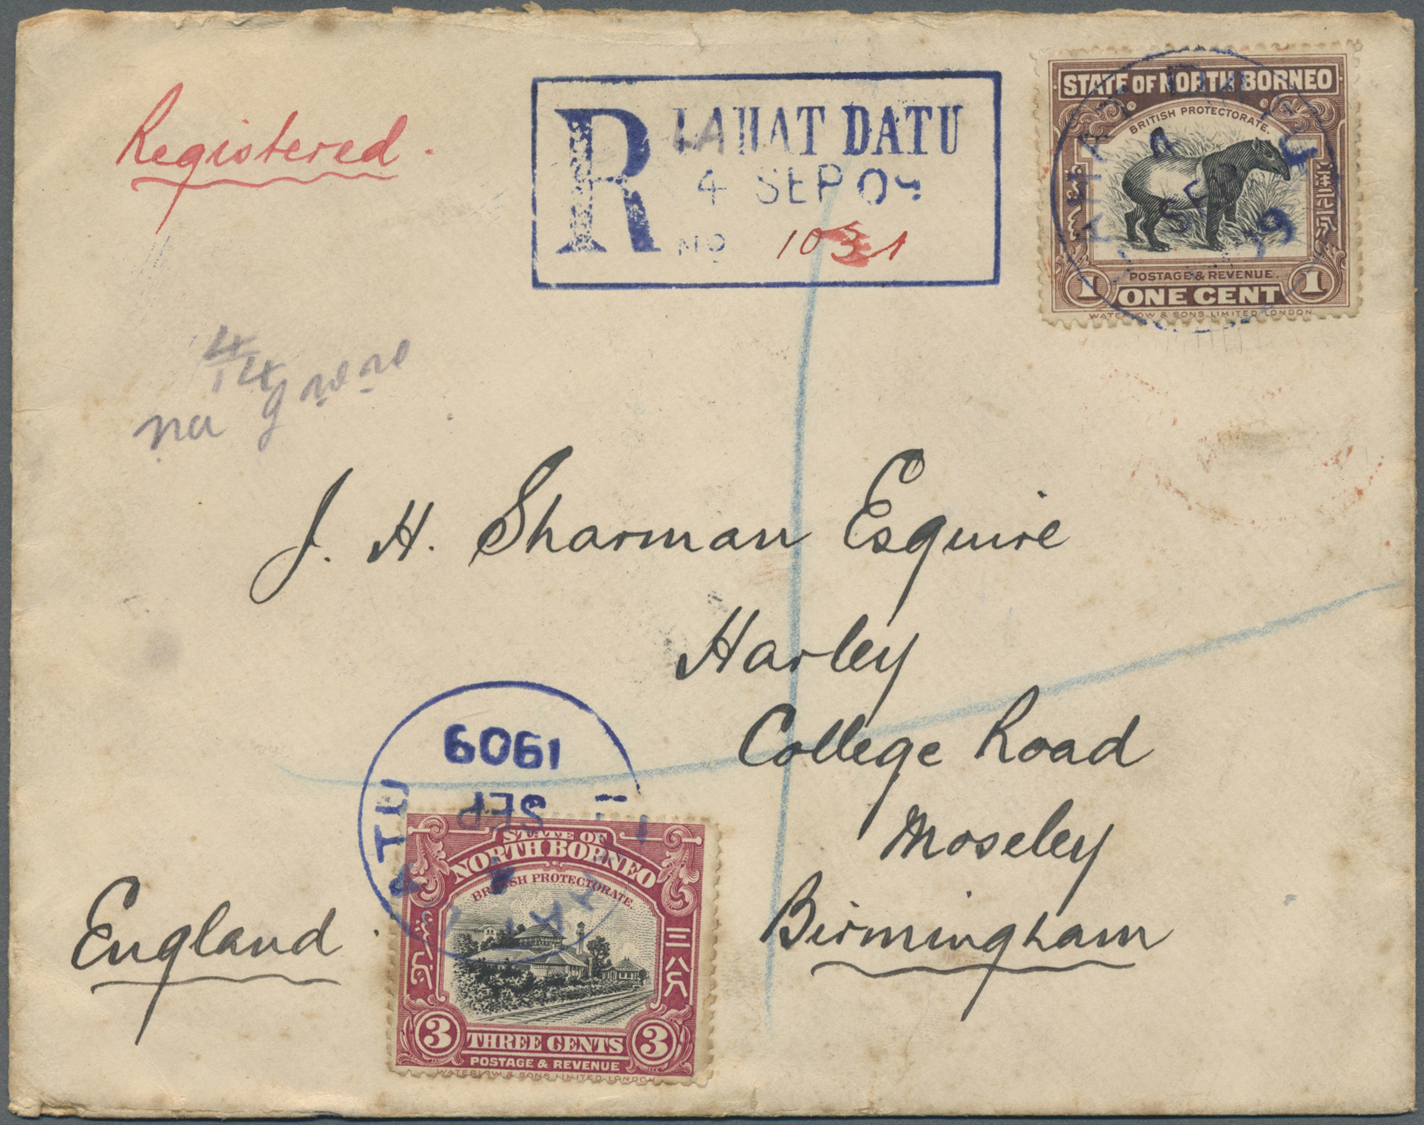 Registered.
R LAHAT DATU
4 SEP 09
NO 1031
STATE OF NORTH BORNEO
BRITISH PROTECTORATE.
POSTAGE & REVENUE.
1 ONE CENT 1
WATERLOW & SONS LIMITED LONDON
4/14
J. H. Sharman Esquire
Harley
College Road
Moseley
Birmingham
England.
1909
SEP
4
STATE OF
NORTH BORNEO
BRITISH PROTECTORATE.
3 THREE CENTS 3
POSTAGE & REVENUE
WATERLOW & SONS LIMITED LONDON